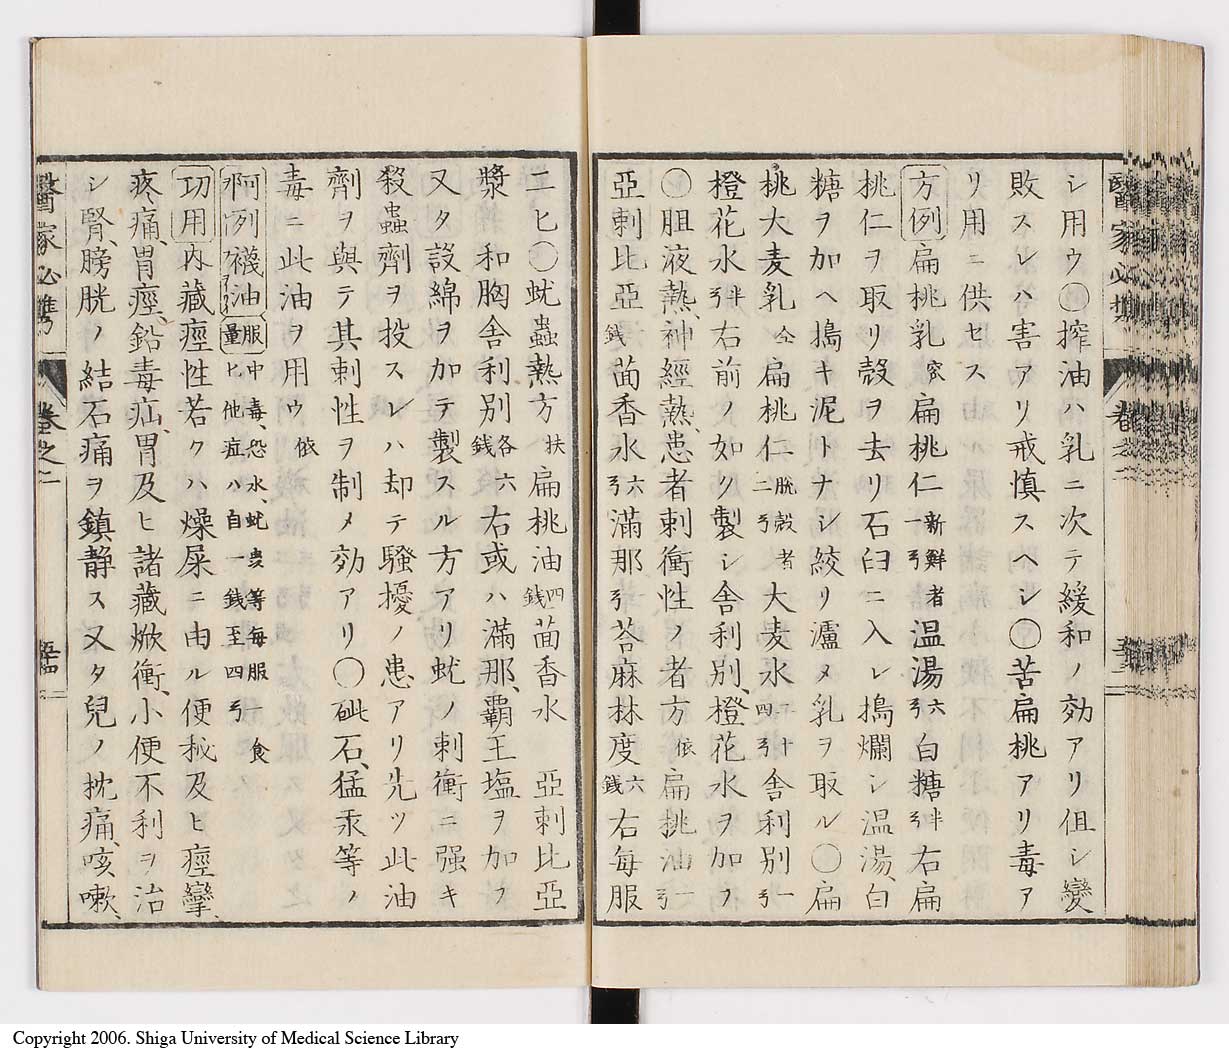 シ用ウ○搾油ハ乳ニ次テ緩和ノ効アリ但シ變
敗スレハ害アリ戒慎スヘシ○苦扁桃アリ毒ア
リ用ニ供セス
方例 扁桃乳 扁桃仁 新鮮者一弓 温湯 六弓 白糖 半弓 右扁
桃仁ヲ取リ殻ヲ去リ石臼ニ入レ搗爛シ温湯、白
糖ヲ加ヘ搗キ泥トナシ絞リ濾メ乳ヲ取ル○扁
桃大麦乳 仝 扁桃仁 脱殻者二弓 大麦水 二十四弓 舎利別 一弓
橙花水 半弓 右前ノ如ク製シ舎利別、橙花水ヲ加フ
○胆液熱、神經熱、患者刺衝性ノ者方 依 扁桃油 一弓
亞刺比亞 銭 茴香水 六弓 滿那 弓 荅麻林度 六銭 右毎服
二匕○蚘蟲熱方 扶 扁桃油 四銭 茴香水 亞刺比亞
漿 和胸舎利別 各六銭 右或ハ滿那、覇王塩ヲ加フ
又タ設綿ヲ加テ製スル方アリ蚘ノ刺衝ニ强キ
殺蟲劑ヲ投スレハ却テ騷擾ノ患アリ先ツ此油
劑ヲ與テ其刺性ヲ制メ効アリ○砒石、猛汞等ノ
毒ニ此油ヲ用ウ 依
阿列襪油 服量 中毒、恐水、蚘虫等毎服一食匕他症ハ自一銭至四弓
功用 内藏痙性若クハ燥屎ニ由ル便秘及ヒ痙攣、
疼痛、胃痙、鉛毒疝、胃及ヒ諸藏焮衝、小便不利ヲ治
シ腎、膀胱ノ結石痛ヲ鎮静ス又タ兒ノ枕痛、咳嗽、
醫家必携 卷之二